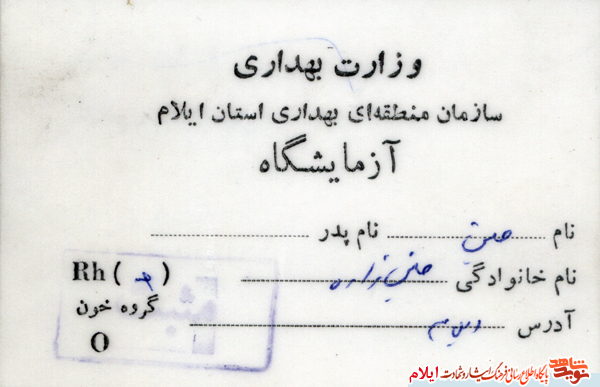 وزارت بهداری
سازمان منطقه‌ای بهداری استان ایلام
آزمایشگاه
نام نام پدر
نام خانوادگی
آدرس
Rh ( )
گروه خون
O
مثبت
نوید شاهد
پایگاه اطلاع رسانی فرهنگ ایثار و شهادت ایلام